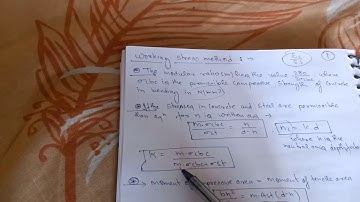 Working stress method :→
The modular ratio (m) has the value 280/3σcbc where
σcbc is the permissible compressive strength of concrete
in bending in N/mm²)
If the stresses in concrete and steel are permissible
then eqn for n is written as
m·σcbc/σst = n/d-n n = k d
where k is the
neutral axis depth factor
K = m·σcbc/m·σcbc+σst
Moment of compressive area = moment of tensile area
bn²/2 = m·Ast(d-n)